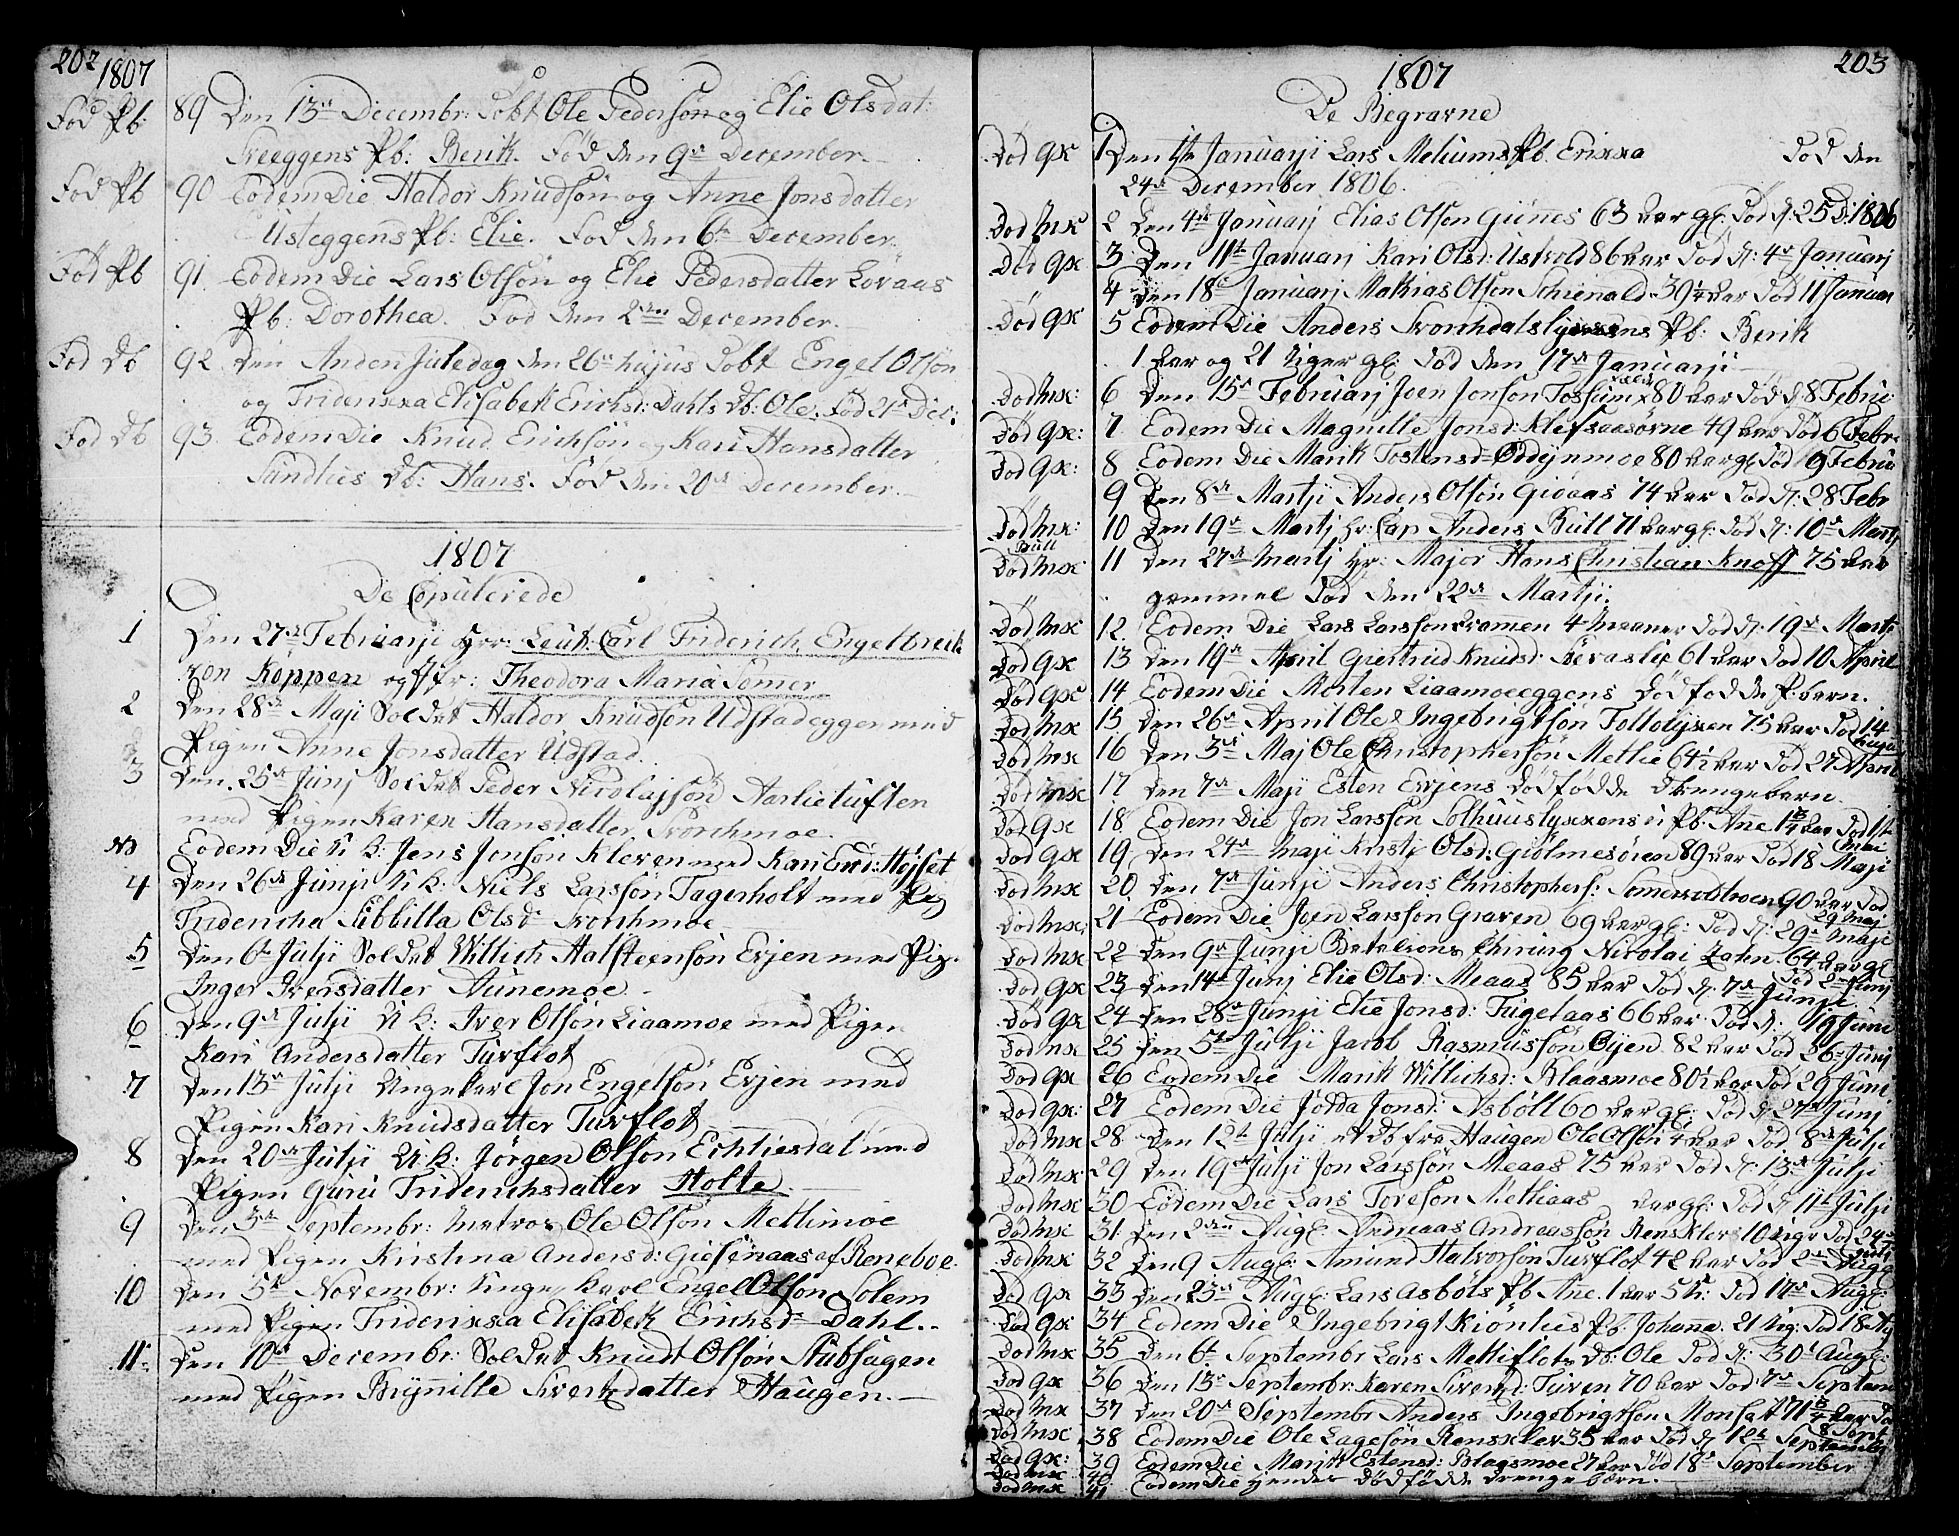 202
1807
Fød Pb 89 Den 13de Decembr: Døbt Ole Pedersøn og Elie Olsdat:
Sveeggens Pb: Berit. Fød den 9de December.
Fød Pb 90 Eodem Die Haldor Knudsøn og Anne Jonsdatter
Usteggens Pb: Elie. Fød den 6te December.
Fød Pb 91. Eodem Die Lars Olsøn og Elie Pedersdatter Løvaas
Pb: Dorothea. Fød den 2den December.
Fød Db 92. Den Anden Juledag den 26de hujus Døbt Engel Olsøn
og Friderixa Elisabeth Erichsd: Dahls Db: Ole. Fød 21de Dec:
Fød Db 93. Eodem Die Knud Erichsøn og Kari Hansdatter
Sundlies Db: Hans. Fød den 20de December.
1807
De Copulerede
1 Den 27de Februarji Hrr: Leut: Carl Friderich Engelbreck
von Køppen og Jfr: Theodora Maria Sømer
2 Den 28de Maji Soldat Haldor Knudsøn Udstadeggen med
Pigen Anne Jonsdatter Udstad.
3 Den 25de Junj Soldat Peder Nicolajsøn Aarlietuften
med Pigen Karen Hansdatter Storchmoe.
Nb Eodem Die U K: Jens Jonsøn Kleven med Kari Høiset
4 Den 26de Junji U K: Niels Larssøn Fagerholt med Pig
Fridericha Sibbilla Olsd: Storchmoe
5 Den 6te Julji Soldat Willich Halsteensøn Evjen med Pig.
Inger Iversdatter Aunemoe.
6 Den 9de Julji U K: Iver Olsøn Liaamoe med Pigen
Kari Andersdatter Turflot
7 Den 13de Julji Ungekarl Jon Engelsøn Evjen med
Pigen Kari Knudsdatter Turflot
8 Den 20de Julji U K: Jørgen Olsøn Echliesdal med
Pigen Guru Friderichsdatter Holte.
9 Den 3de Septembr: Matros Ole Olsøn Mettimoe
med Pigen Kristina Andersd: af Reneboe.
10 Den 5te Novembr: Unge Karl Engel Olsøn Solem
med Pigen Friderixsa Elisabeth Erichsd: Dahl.
11. Den 10de Decembr: Soldat Knudt Olsøn Stubsagen
med Pigen Brynnille Sivertsdatter Haugen.
203
1807
De Begravne
Død Qx 1 Den 1ste Januarji Lars Meliums Pb. Erixsa Død den
24de December 1806.
Død Mx 2 Den 4de Januarj Elias Olsøn Giønnes 63 Aar gl: Død d: 25 D: 1806
Død Qx 3 Den 11te Januarj Kari Olsd: Ustvold 86 Aar Død d: 4de Januarj
4 Den 18de Januarj Mathias Olsøn 39 1/4 Aar Død 11 Januar
Død Qx 5 Eodem Die Anders Pb: Berit
1 Aar og 21 Uger gl: Død den 17de Januarji
Død Mx: 6 Den 15de Februarj Joen Jonsøn 80 Aar Død d: 8 Februe
Død Qx: 7 Eodem Die Magnille Jonsd: Klefsaasørne 49 Aar Død 6 Febr
Død Qx: 8 Eodem Die Marit Tostensd: 80 Aar gl Død 9 Februe
9 Den 8de Martji Anders Olsøn Gioaas 74 Aar Død d: 28 Febr
Død Mx: 10 Den 19de Martj Hr: Cap Anders Bull 71 Aar gl: Død d: 10de Martj
Bull
Død Mx 11 Den 27de Martj Hr: Major Hans Christian Knoff 75 Aar
gammel Død den 22de Martji.
Død Mx 12. Eodem Die Lars Larssøn Kramen 4 Maaner Død d: 19de Martj
Død Qx 13 Den 19de April Giertrud Knudsd: 61 Aar Død 10 April
Død Qx 14 Eodem Die Morten Liaamoeeggens Dødfødde P: barn.
Død Mx 15. Den 26de April Ole Ingebrigtsøn 75 Aar Død 14
hujus
Død Mx 16 Den 3de Maj Ole Christophersøn Metlie 64 1/2 Aar Død 27 April
Død Mx 17 Den 7de Maji Esten Evjens Dødfødde Drengebarn.
Død Qx 18 Eodem Die Jon Larssøn Pb. Ane Aar Død 1ste
Mai
Død Qx 19 Den 24de Maji Kristi Olsd: Giølmesøren 89 Aar Død 18 Maji
Død Mx 20. Den 7de Junji Anders Christophers: 90 Aar Død
29 Maj
Død Mx: 21 Eodem Die Joen Larssøn Graven 69 Aar gl: Død d: 29de Maji
Død Mx 22 Den 9de Junji Batalions Chirurg Nicolai Zahn 64 Aar gl:
Død 2den Junj
Død Qx 23 Den 14de Junj Elie Olsd: Meaas 85 Aar Død d: 7de Junji
Død Qx 24 Den 28de Junji Elie Jonsd: Fugelaas 66 Aar Død d: 19 Juni
Død Mx 25 Den 5te Julji Jacob Rasmussøn Øyen 82 Aar Død 26de Junj
Død Qx 26 Eodem Die Marit Willichsd: Blaasmoe 80 1/2 Aar Død 29 Juni
Død Qx: 27 Eodem Die Jødda Jonsd: Asbøll 60 Aar gl: Død d: 27de Junj
Død Mx 28 Den 12te Julji et Db fra Haugen Ole Olsøn 4 Aar Død 8de Julji
Død Mx: 29 Den 19de Julji Jon Larssøn Meaas 75 Aar Død d: 13de Julji
Død Mx 30 Eodem Die Lars Toresøn Metliaas Aar gl: Død d: 11te Julji
Død Mx 31. Den 2den Aug: Andreaas Andreassøn Rensklev 10 Uger Død 24de
Julj
Død Mx 32 Den 9 Aug: Amund Halvorsøn Turflot 42 Aar Død 2den Aug
Død Qx 33 Den 23de Aug: Lars Asbøls Pb Ane. 1 Aar 5 U: Død 14de Aug:
Død Qx: 34 Eodem Die Ingebrigt Kionlies Pb: Johana. 21 Uig: Død 18 Aug
Død Mx 35 Den 6te Septembr Lars Mettiflots Db: Ole Død d: 30te Aug:
Død Qx 36 Den 13de Septembr: Karen Sivertsd: Turen 70 Aar Død 7de Septem
Død Mx 37 Den 20de Septembr Anders Ingebrigtsøn Monset 71 3/4 Aar Død
8 Sept
Død Mx 38 Eodem Die Ole Lagesøn Rensklev 35 Aar Død d: 12te Septembr
Død Qx: 39 Eodem Die Marit Estensd: Blaasmoe 27 Aar Død 18de September
Død Mx 40
Død Mx 41 Eodem Die Dødfødde Drenge børn.